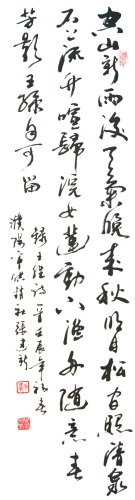 空山新雨後天氣晚來秋明月松間照清泉
石上流竹喧歸浣女蓮動下漁舟隨意春
芳歇王孫自可留
錄王維詩一首壬辰年初春
濮陽